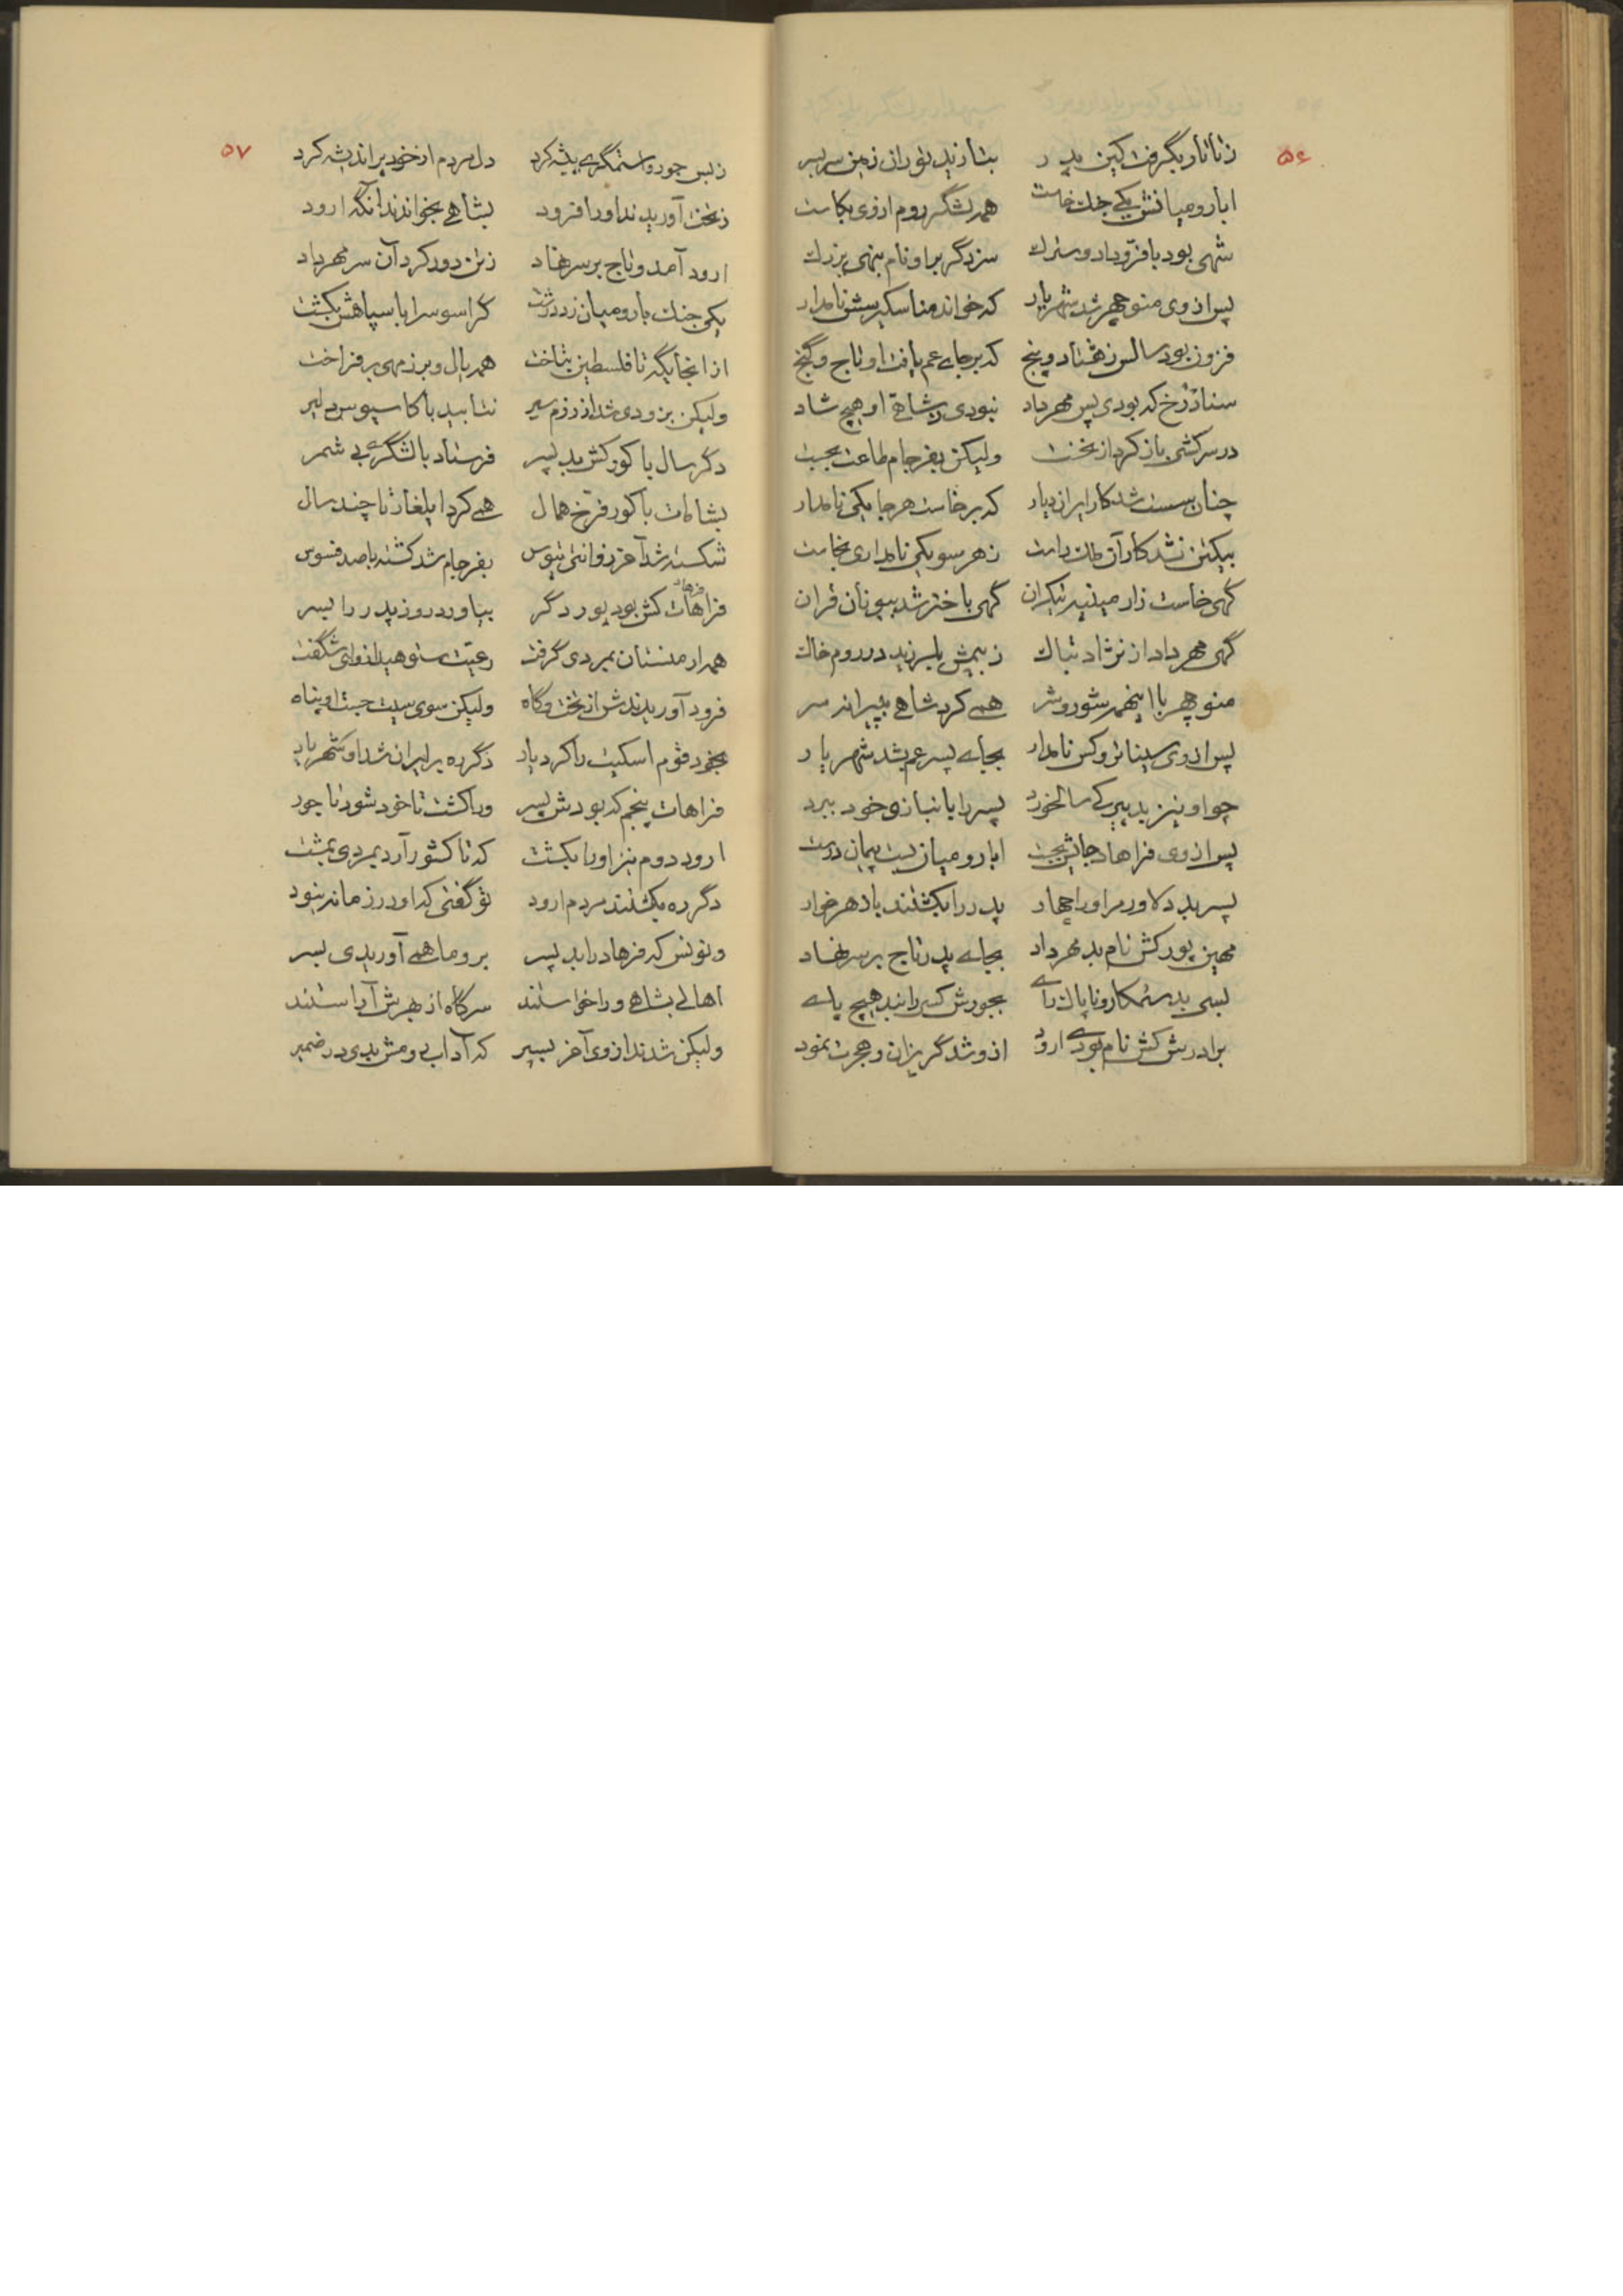 ۵۶
ز تاتار بگرفت کین پدر بتازید توران زمین سربسر
ابا رومیانش یکی جنک خاست همه لشگر روم ازوی بکاست
شهی بود با فرّ و داد و سترك سزد گر براو نام بنهی بزرك
پس از وی منوچهر شد شهریار که خواند مناسکیرسش نامدار
فزون بود سالش ز هشتاد و پنج که بر جای عم یافت او تاج و گنج
سنادرخ که بودی پس مهرداد نبودی بشاهی او هیچ شاد
در سرکشی باز کرد از نخست ولیکن بفرجام طاعت بجست
چنان سست شد کار ایران دیار که برخاست هرجا یکی نامدار
بیکتن نشد کار آن ملك راست ز هر سو یکی نامداری بخاست
گهی خاست زار مینیه تیکران گهی باختر شد بیونان قران
گهی مهرداد از نژاد تباك ز بیمش بلرزید در روم خاك
منوچهر با اینهمه شور و شر همی کرد شاهی بپیرانه سر
پس از وی سیناتروکس نامدار بجای پسر عم بشد شهریار
چو او نیز بد پیرکی سالخورد پسر را بانبازی خود ببرد
پس از وی فراهاد جایش بجست ابا رومیان بست پیمان درست
پسر بد دلاور مر او را چهار پدر را بکشتند با زهر خوار
مهین پور کش نام بد مهرداد بجای پدر تاج بر سر نهاد
بسی بد ستمکار و ناپاك رای بجورش کسی را نبد هیچ پای
برادرش کش نام بودی ارود ازو شد گریزان و هجرت نمود
۵۷
ز بس جور و استمگری پیشه کرد دل مردم از خود پر اندیشه کرد
ز تخت آوریدند او را فرود بشاهی بخواندند آنگه ارود
ارود آمد و تاج بر سر نهاد ز تن دور کرد آن سر مهرداد
یکی جنك با رومیان زد درشت کراسوس را با سپاهش بکشت
از آنجایگه تا فلسطین بتاخت همه یال و برز مهی بر فراخت
ولیکن بزودی شد از رزم سیر نتابید با کاسیوس دلیر
دگر سال پاکور کش بد پسر فرستاد با لشگری بی شمر
بشامات پاکور فرّخ همال همی کرد ایلغار تا چند سال
شکسته شد آخر ز وانتی تیوس بفرجام شد کشته با صد فسوس
فرهاد
فراهات کش بود پور دگر بیاورد روز پدر را بسر
همه ارمنستان بمردی گرفت رعیّت ستوهید ازوای شگفت
فرود آوریدندش از تخت و گاه ولیکن سوی سیت جست او پناه
بخود قوم اسکیت را کرد یار دگر ره بر ایران شد او شهریار
فراهات پنجم که بودش پسر ورا کشت تا خود شود تاجور
ارود دوم نیز او را بکشت که تا کشور آرد بمردی بمشت
دگر ره بکشتند مردم ارود تو گفتی که او در زمانه نبود
ونونس که فرهاد را بد پسر بروما همی آوریدی بسر
اهالی بشاهی ورا خواستند سر گاه از بهرش آراستند
ولیکن شدند از وی آخر بسیر که آداب رومش بدی در ضمیر